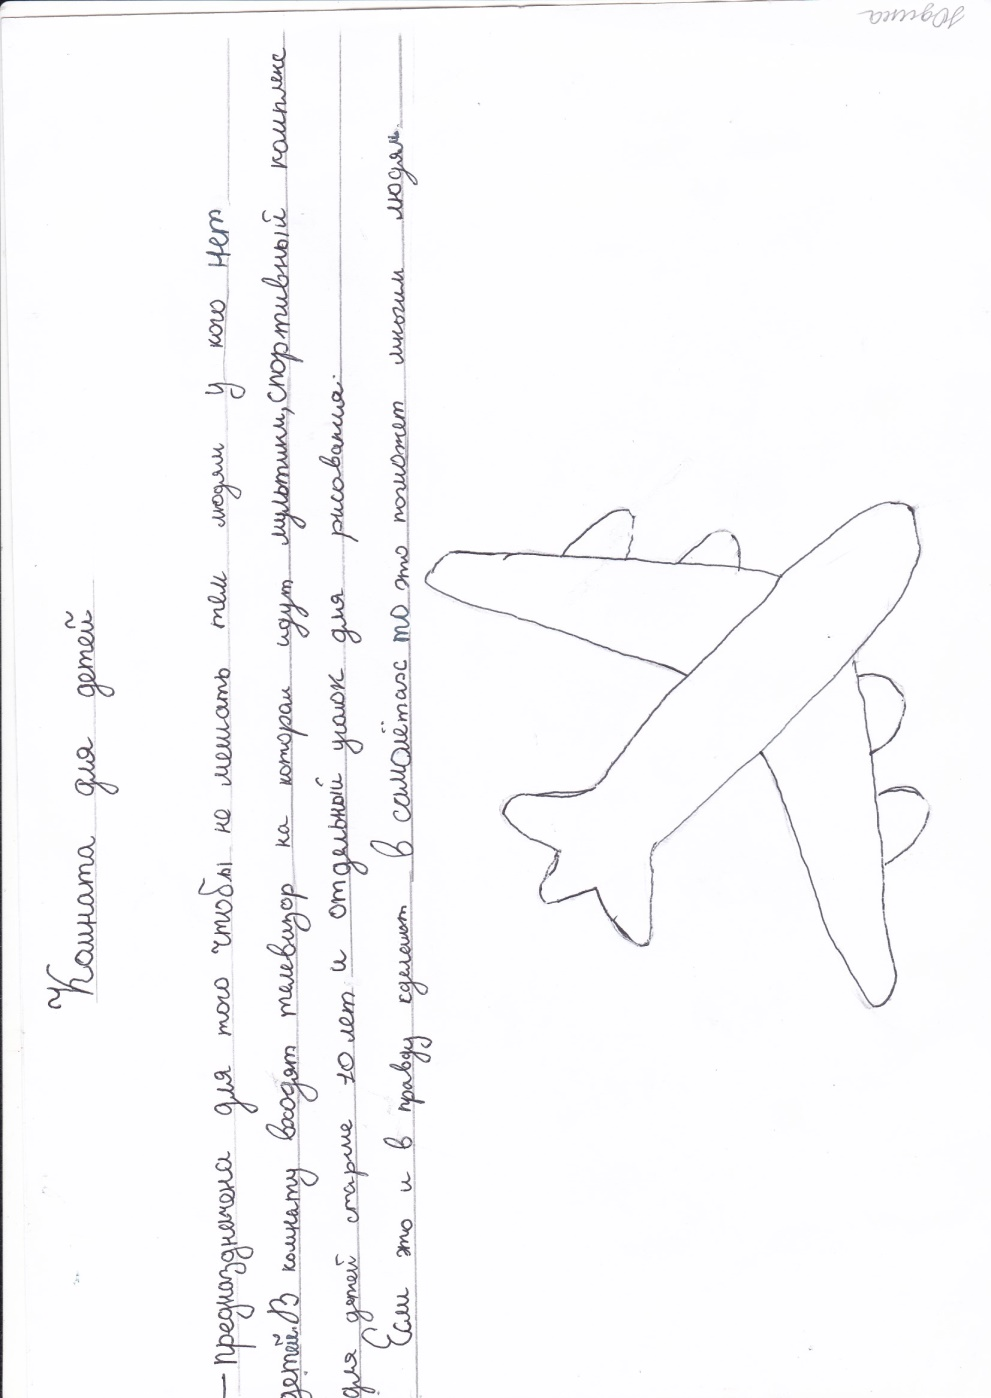 Юдина
Комната для детей
— Предназначена для того чтобы не мешать тем людям у кого нет
детей. В комнату входят телевизор на котором идут мультики, спортивный комплекс
для детей старше 10 лет и отдельный уголок для рисования.
Если это и в правду сделают в самолётах то это поможет многим людям.